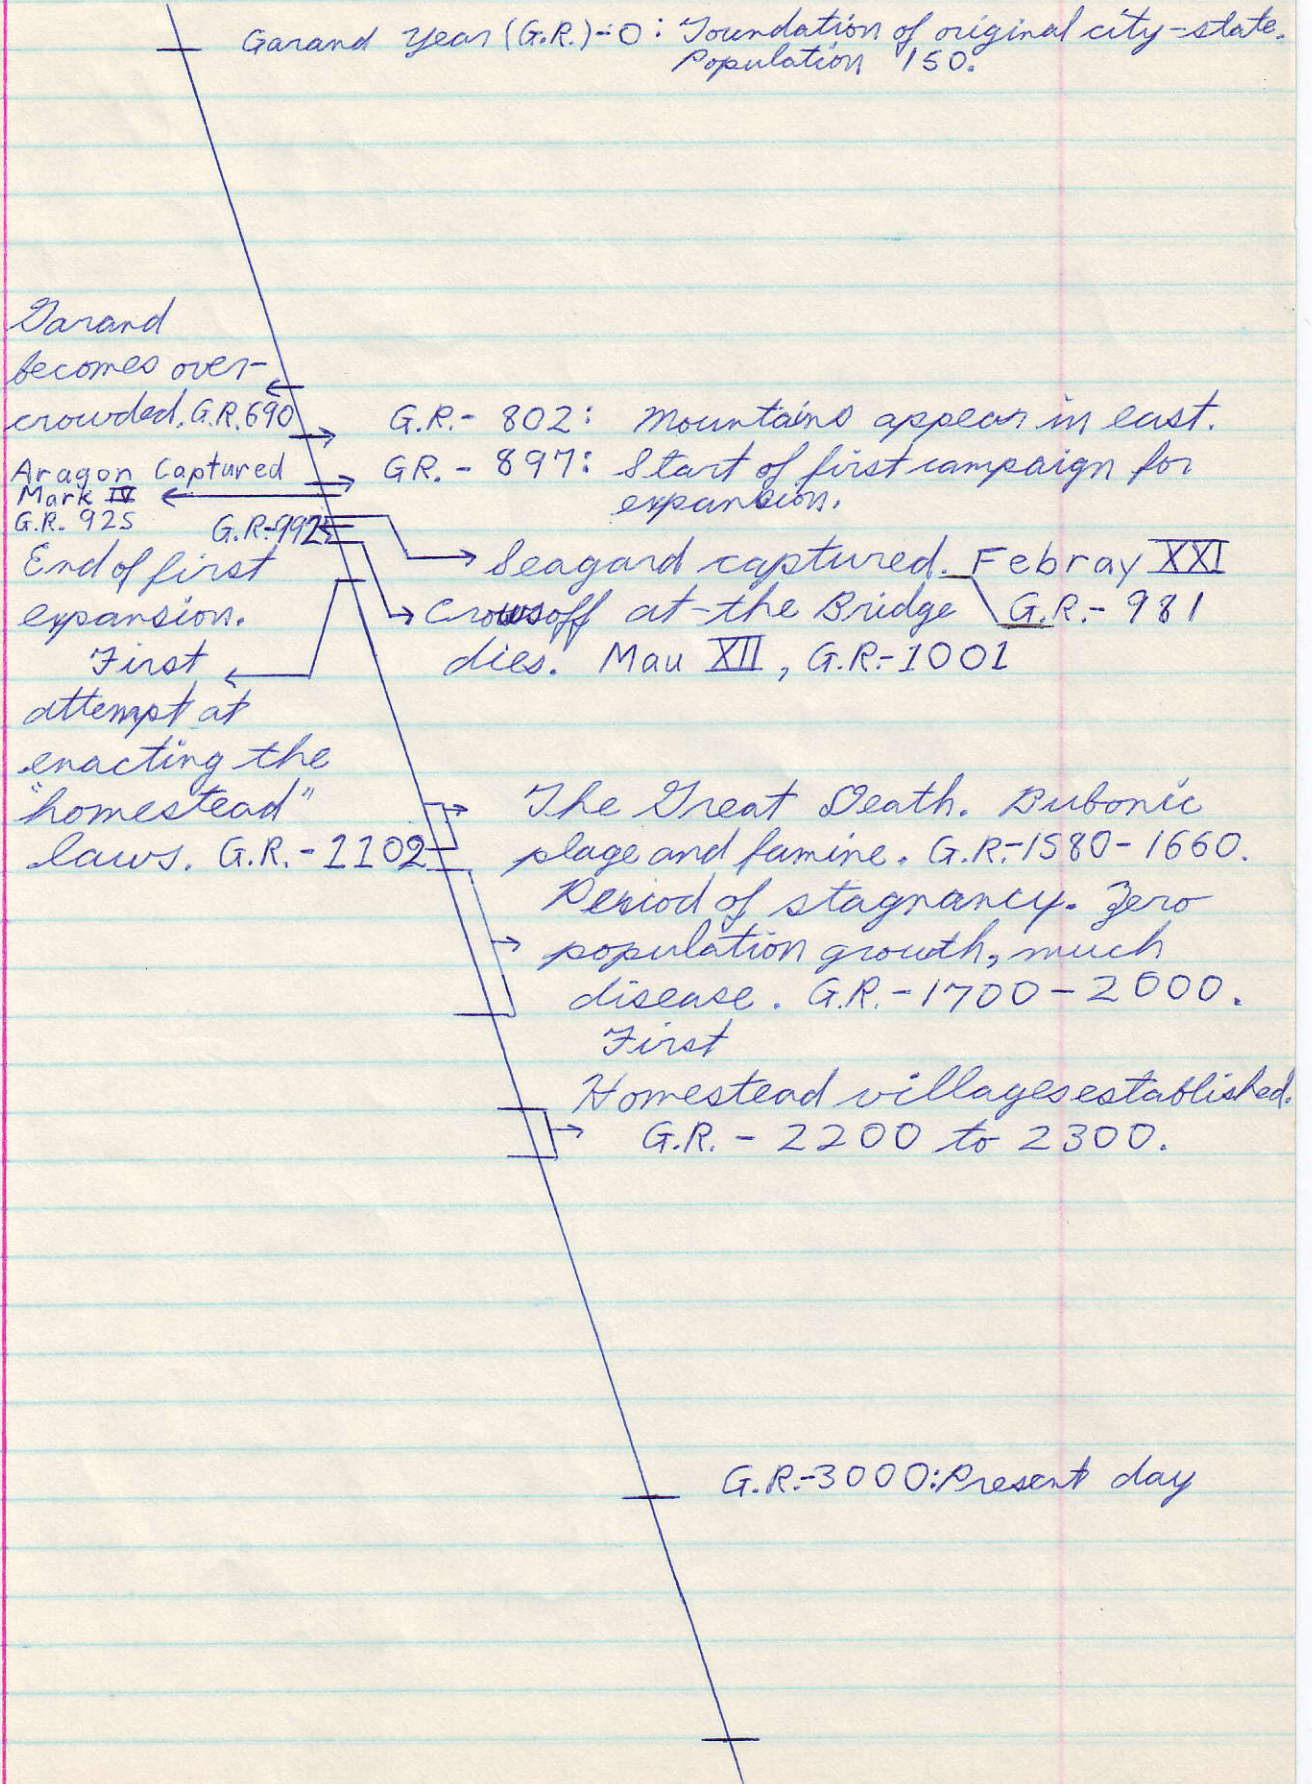 Garand Year (G.R.)-0: Foundation of original city-state.
Population 150.
Garand
becomes over-
crowded. G.R. 690
G.R.- 802: Mountains appear in east.
Aragon Captured
Mark IV
G.R. 925
GR. - 897: Start of first campaign for
expansion.
G.R.-992
End of first
expansion.
Seagard captured. Febray XXI
G.R.- 981
at the Bridge
dies. Mau XII, G.R.-1001
First
attempt at
enacting the
"homestead"
laws. G.R.-1102
The Great Death. Bubonic
plage and famine. G.R.-1580-1660.
Period of stagnancy. Zero
population growth, much
disease. G.R.-1700-2000.
First
Homestead villages established.
G.R. - 2200 to 2300.
G.R.-3000: Present day